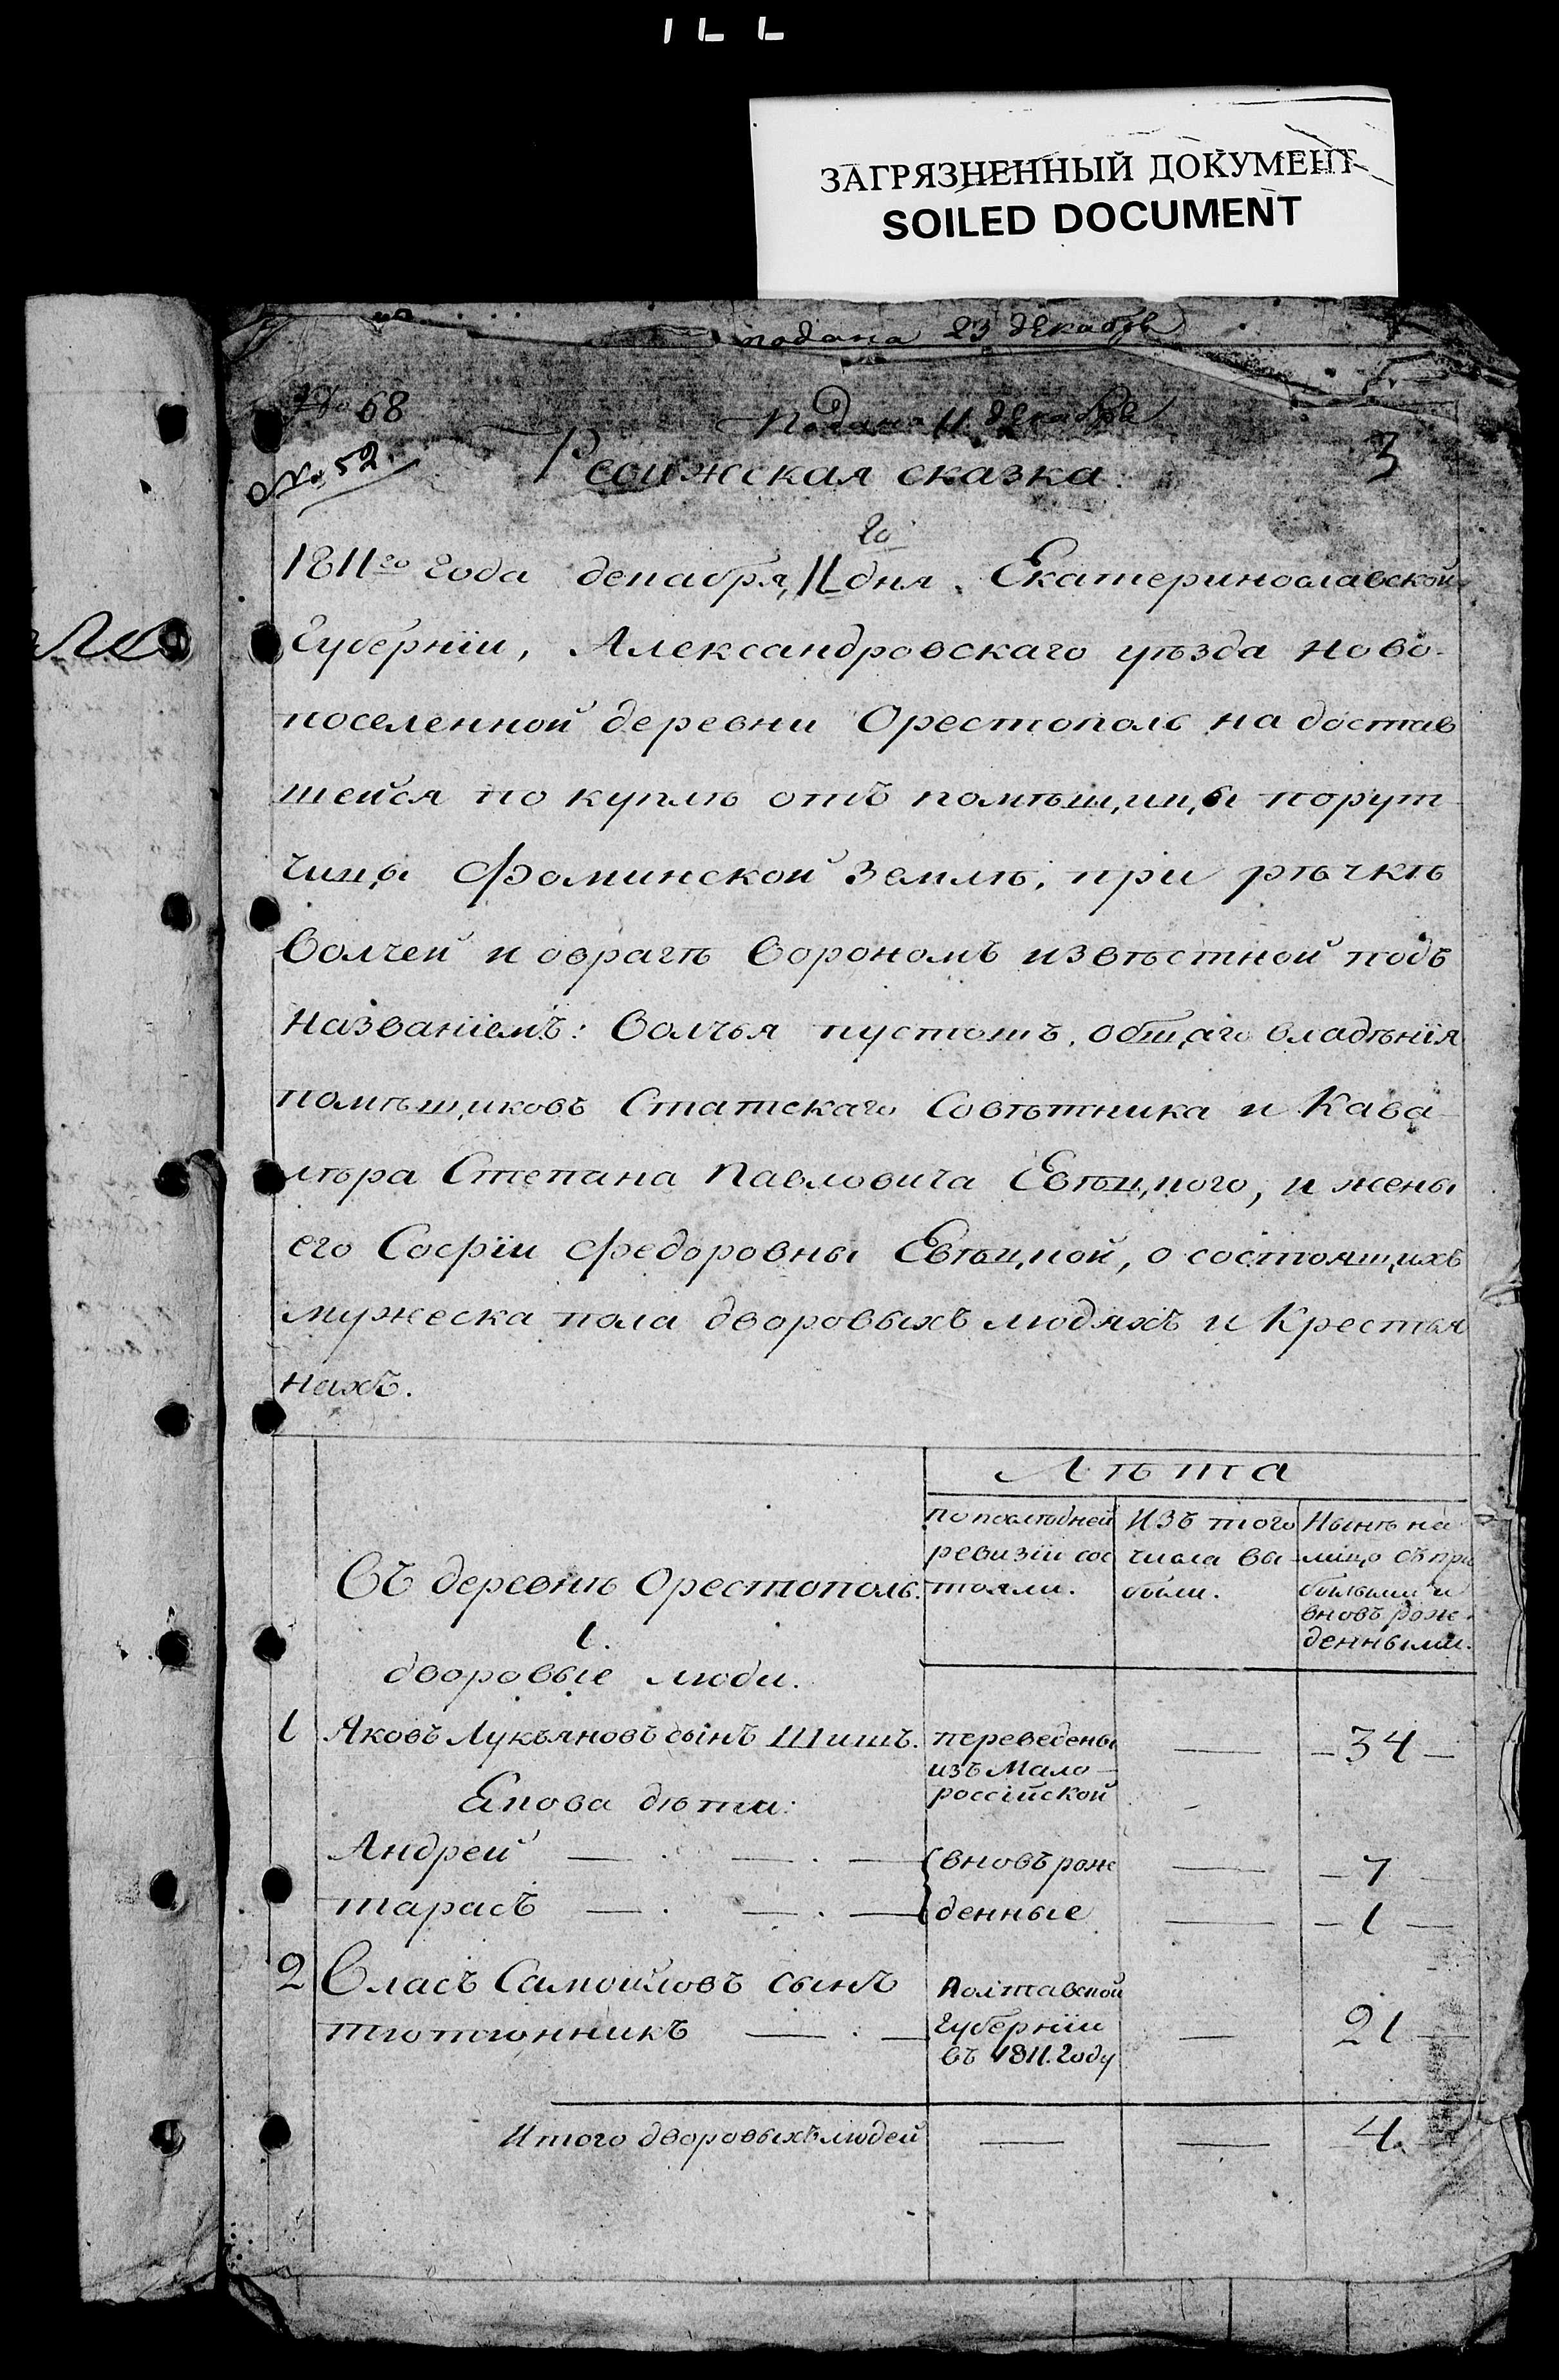 ЗАГРЯЗНЕННЫЙ ДОКУМЕНТ
SOILED DOCUMENT
подана 23 декабря
No 68
Подана 11 декабря
No 52.
Ревижская сказка.
3
1811го года декабря, 11го дня. Екатеринославской
Губернiи, Александровскаго уѣзда ново-
поселенной деревни Орестополь на достав
шейся по куплѣ отъ помѣщицы порут
чицы Фоминской землѣ, при рѣчкѣ
Волчей и оврагѣ Ворономъ извѣстной подъ
названiемъ: Волчья пустошъ, общаго владѣнiя
помѣщиковъ Статскаго Совѣтника и Кава-
лѣра Степана Павловича Евѣцкого, и жены
его Софiи Федоровны Евѣцкой, о состоящихъ
мужеска пола дворовыхъ людяхъ и Крестья
нахъ.
Лѣта
Въ деревнѣ Орестополь.
по послѣдней
ревизiи сос
тояли.
Изъ того
числа вы-
были.
Нынѣ на
лицо съ при
былыми и
вновь рож-
денными.
1.
дворовые люди.
1 Яковъ Лукьяновъ сынъ Шишъ. переведены — -34-
изъ Мало-
россiйской
Якова дѣти:
Андрей — . — . — вновь рож — -7-
Тарасъ — . — . — денные — -1-
2 Власъ Самойловъ сынъ Полтавской
тютюнникъ — . — губернiи — 21-
въ 1811. году
Итого дворовыхъ людей — — 4.